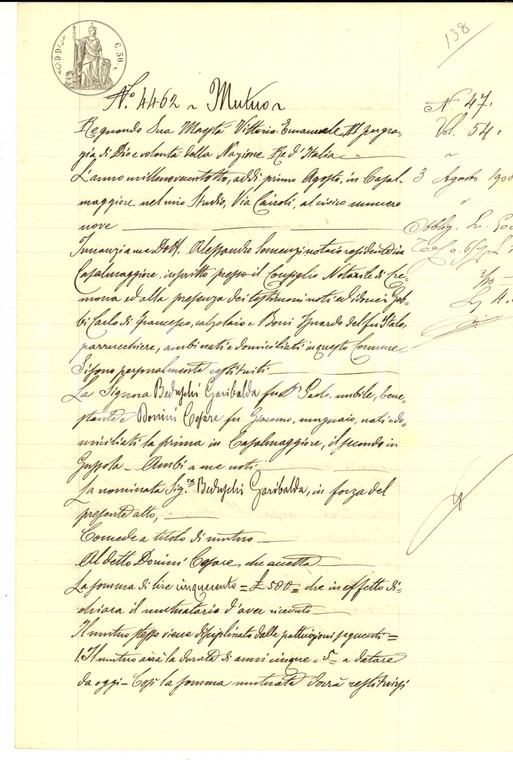 138
C. 50
N.o 4462 ~ Mutuo ~
N. 47.
Vol. 54.
Regnando Sua Maestà Vittorio Emanuele III per gra=
zia di Dio e volontà della Nazione Re d'Italia
L'anno millenovecentotto, addì primo Agosto, in Casal=
3 Agosto 190
maggiore nel mio Studio, Via Cairoli, al civico numero
nove
Innanzi a me Dott. Alessandro notaio residente in
Casalmaggiore, inscritto presso il Consiglio Notarile di Cre=
mona ed alla presenza dei testimoni noti ed idonei
bi Carlo di Francesco, calzolaio e Boni del fu Italo,
parrucchiere, ambi nati e domiciliati in questo Comune
Si sono personalmente costituiti
La Signora Beduschi Garibalda fu D.r Paolo, nubile, bene=
stante e Donnini Cesare fu Giacomo, mugnaio, nati e do=
miciliati la prima in Casalmaggiore, il secondo in
Gussola - Ambi a me noti
La nominata Sig.ra Beduschi Garibalda, in forza del
presente atto,
Concede a titolo di mutuo
Al detto Donnini Cesare che accetta
La somma di lire cinquecento = £ 500 = che in effetto di=
chiara il mutuatario d'aver ricevuto
Il mutuo stesso viene disciplinato dalle pattuizioni seguenti =
1. Il mutuo avrà la durata di anni cinque = 5 = a datare
da oggi - Così la somma mutuata dovrà restituirsi